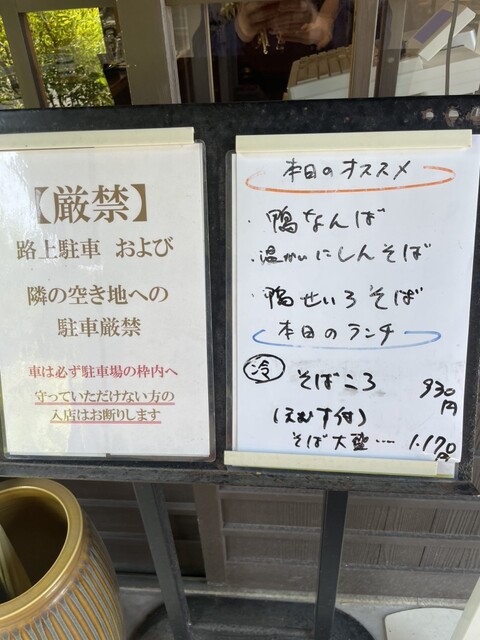 【厳禁】
路上駐車 および
隣の空き地への
駐車厳禁
車は必ず駐車場の枠内へ
守っていただけない方の
入店はお断りします
本日のオススメ
・鴨なんば
・温かいにしんそば
・鴨せいろそば
本日のランチ
冷 そばころ 930円
(えむす付)
そば大盛…… 1.170円